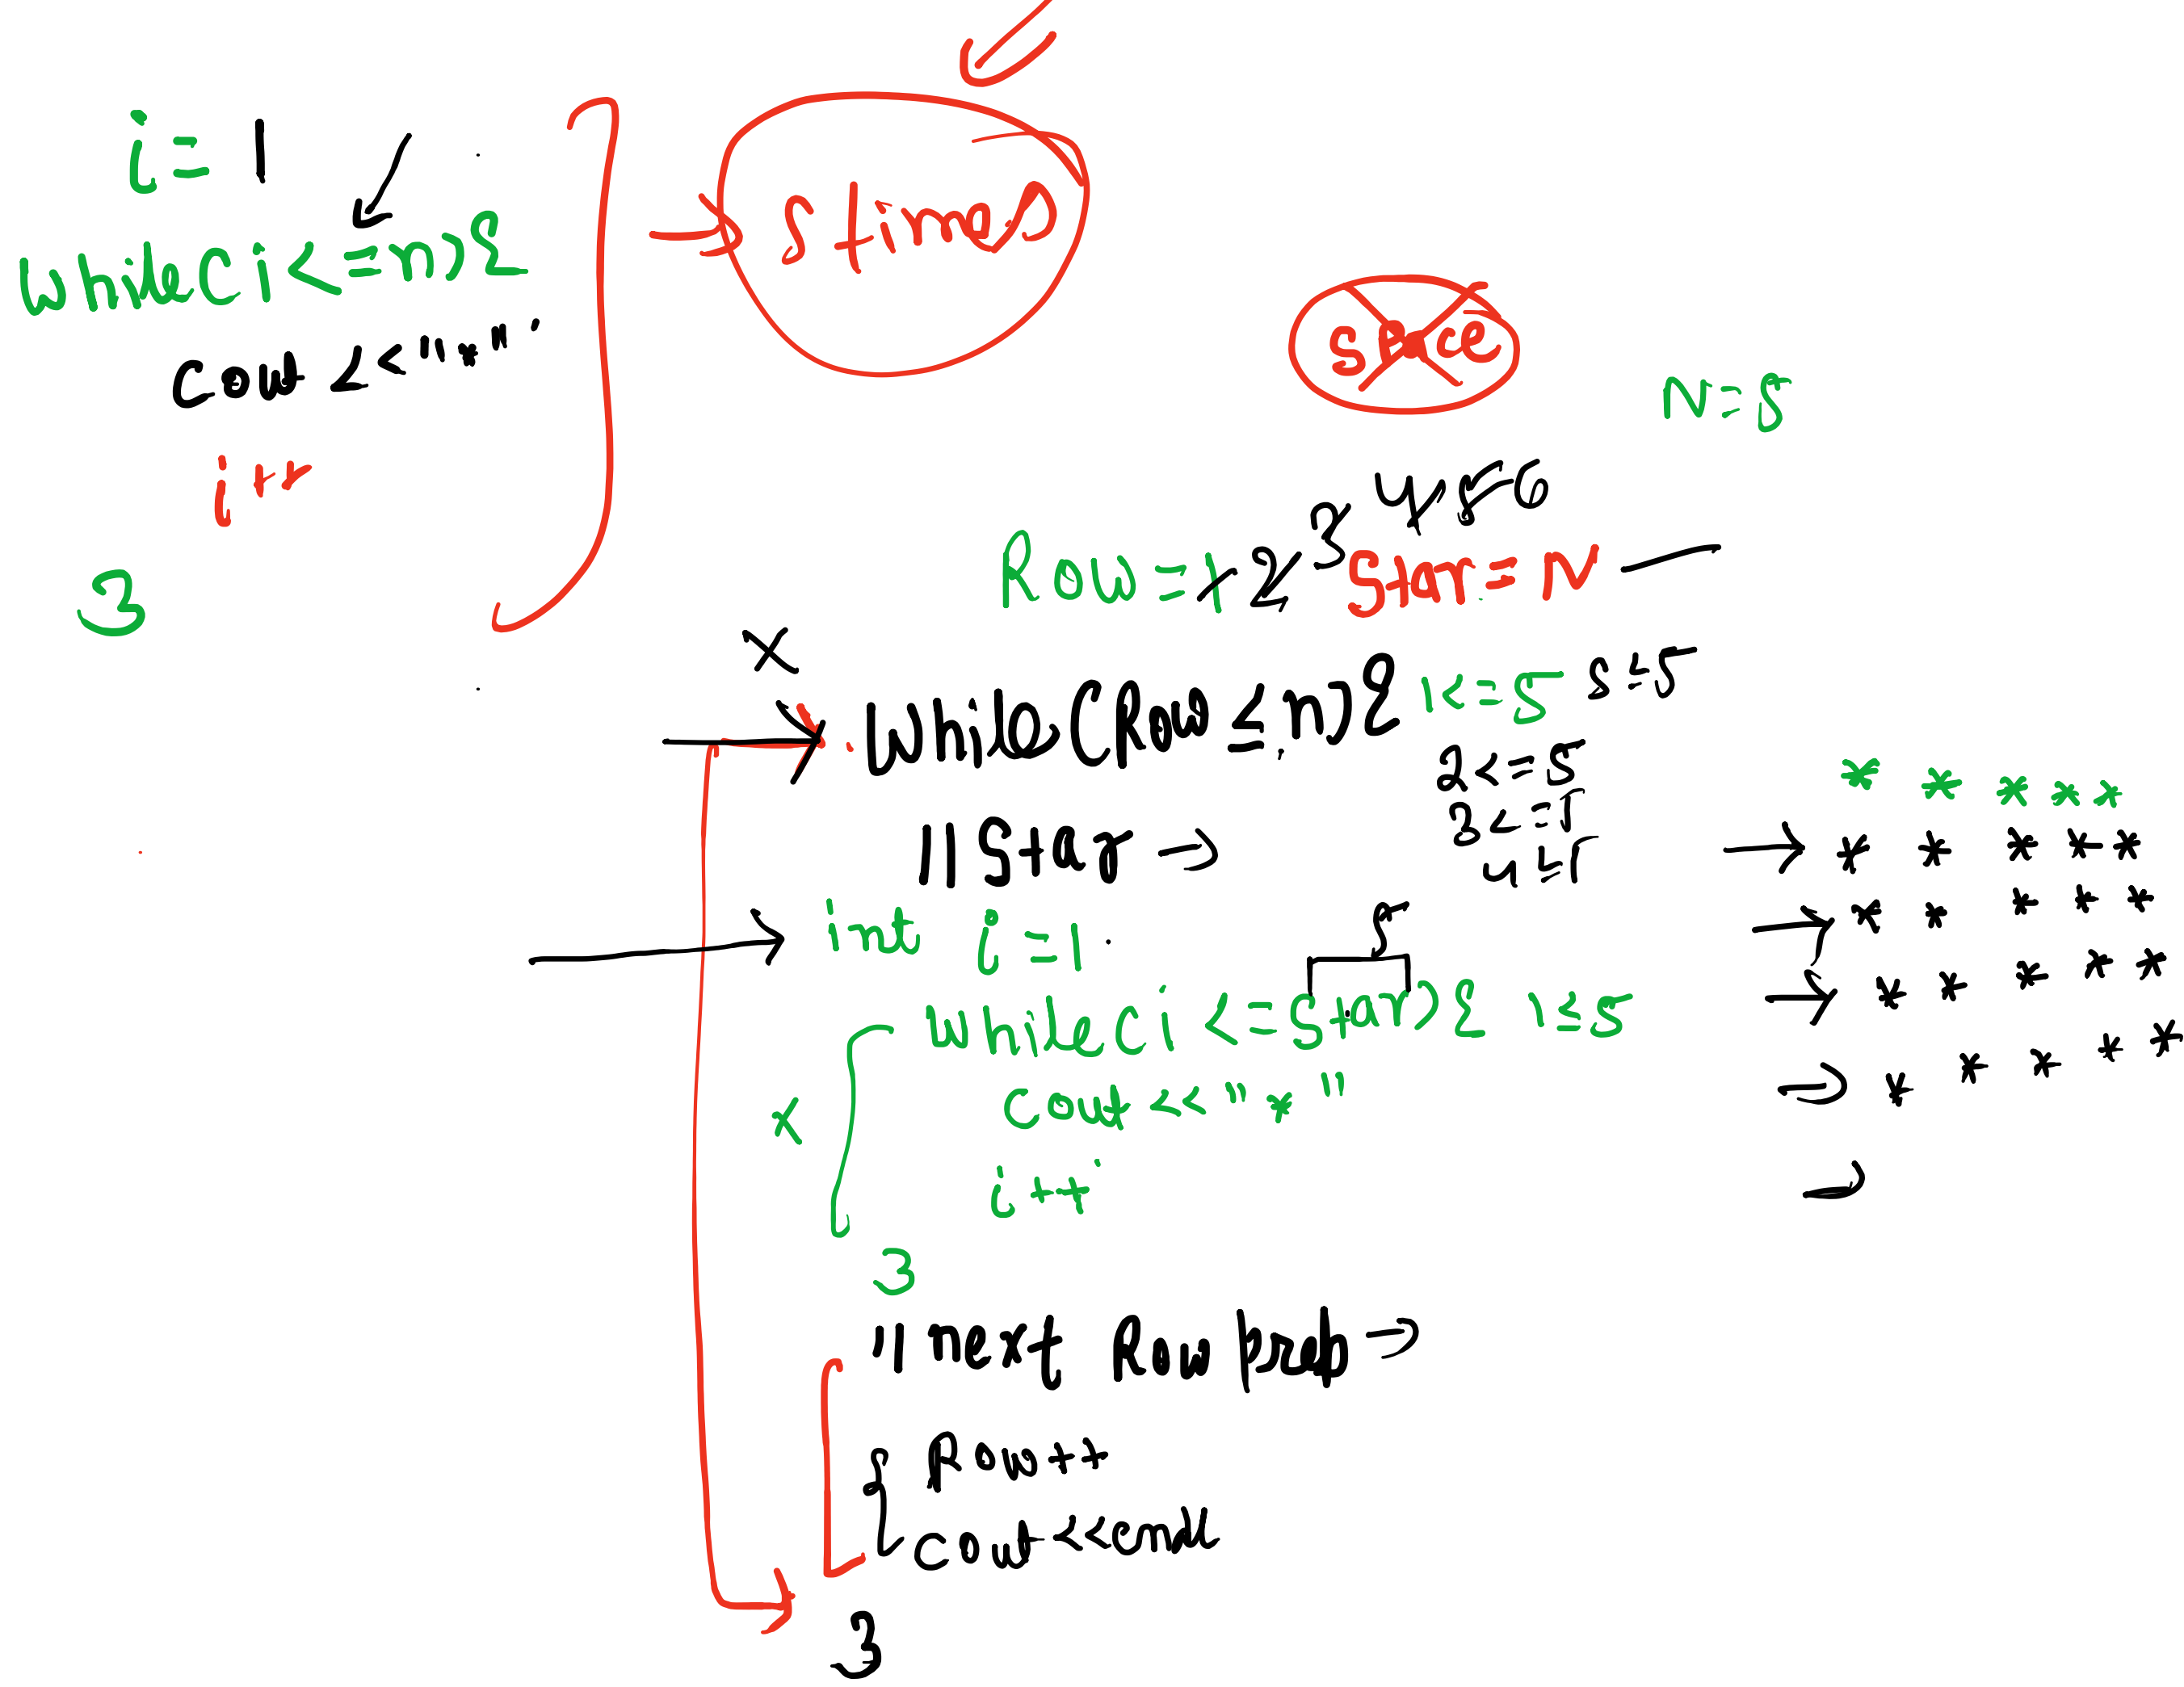 i = 1
while(i<=n){
cout << "*"
i++
}
5 times
space
N=5
Row = 1 2 3 4 5 6
Star = N
while(Row ≤ n){ 1<=5 5≤5
2<=5
3<=5
4≤5
// Star →
int i = 1
5
while(i <= star){ 1≤5
cout << "*"
i++
}
// next Row prep →
Row++
cout<<endl
}
* * * * *
→ * * * * *
→ * * * * *
→ * * * * *
→ * * * * *
→